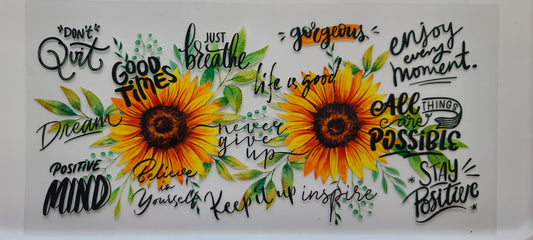 "DON'T"
Quit
GOOD
TIMES
JUST
breathe
gorgeous
enjoy
every
moment.
life is good
Dream
never
give
up
All THINGS
are
POSSIBLE
POSITIVE
MIND
Believe
in
Yourself
Keep it up
inspire
STAY
Positive